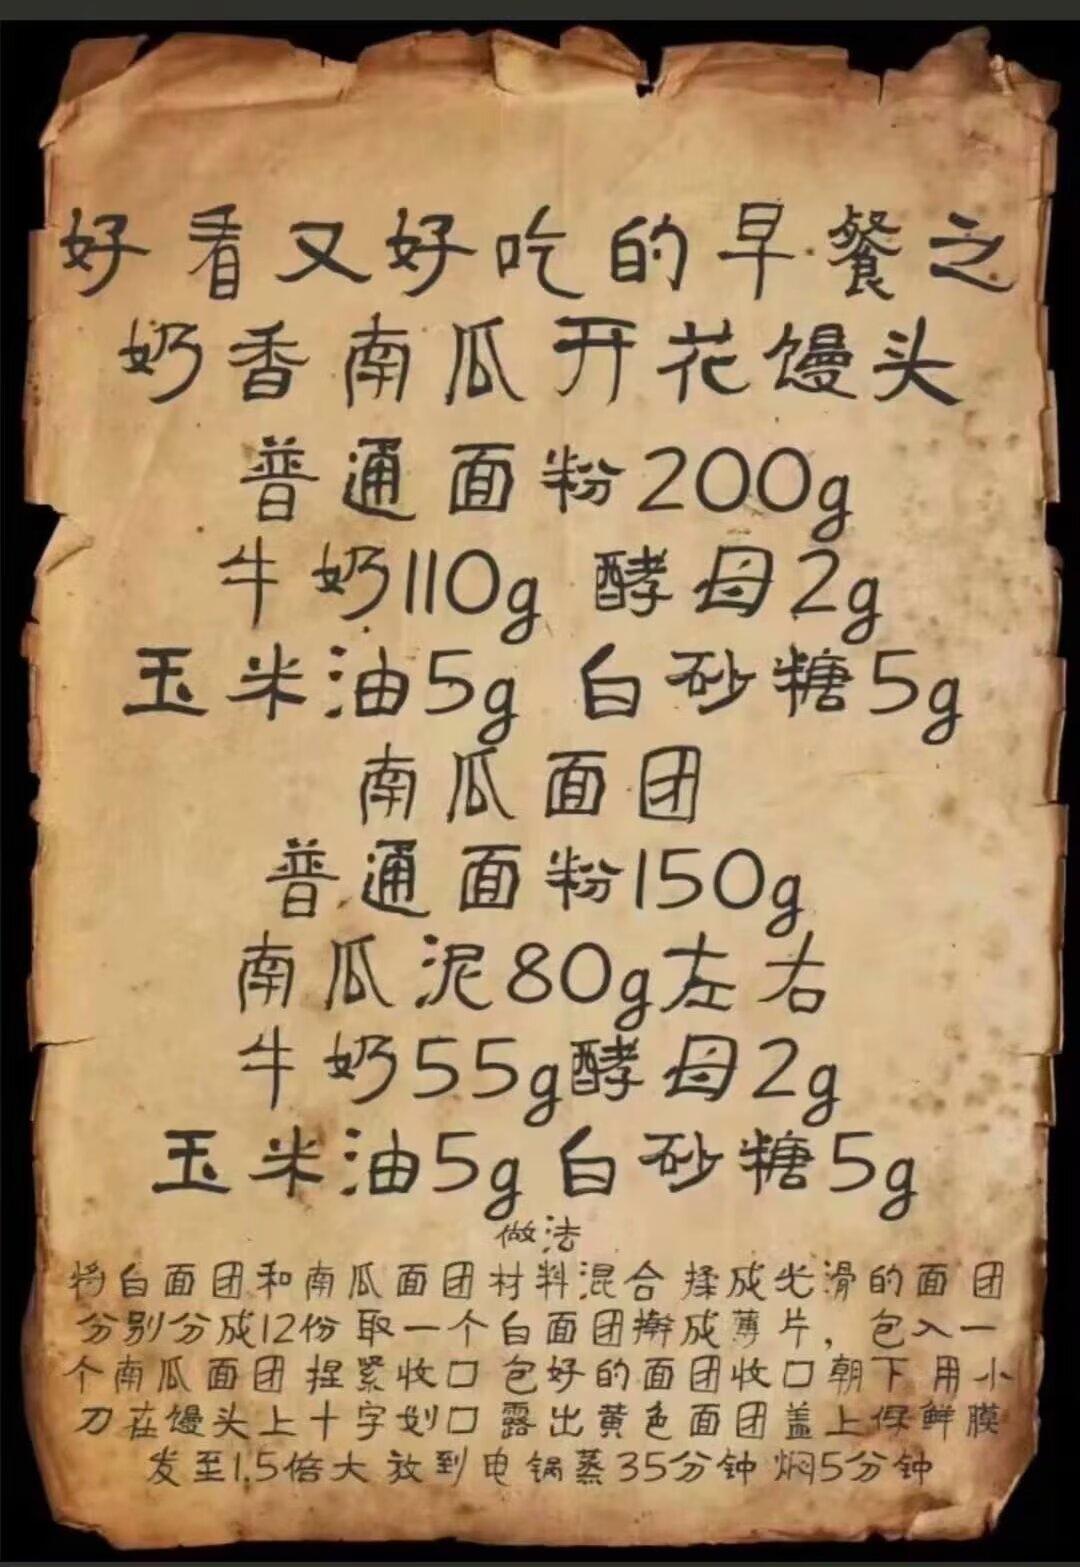 好看又好吃的早餐之
奶香南瓜开花馒头
普通面粉200g
牛奶110g 酵母2g
玉米油5g 白砂糖5g
南瓜面团
普通面粉150g
南瓜泥80g左右
牛奶55g酵母2g
玉米油5g 白砂糖5g
做法
将白面团和南瓜面团材料混合 揉成光滑的面团
分别分成12份 取一个白面团擀成薄片，包入一
个南瓜面团 捏紧收口 包好的面团收口朝下 用小
刀在馒头上十字划口 露出黄色面团盖上保鲜膜
发至1.5倍大 放到电锅蒸35分钟 焖5分钟